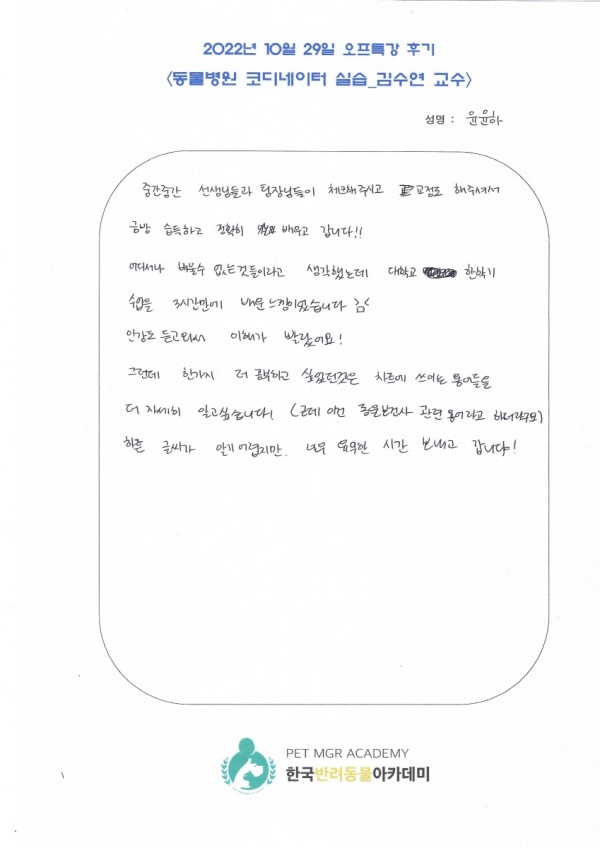 2022년 10월 29일 오프특강 후기
<동물병원 코디네이터 실습_김수연 교수>
성명 : 윤윤하
중간중간 선생님들과 팀장님들이 체크해주시고 교정도 해주셔서
금방 습득하고 정확히 배우고 갑니다!!
어디서나 배울수 없는것들이라고 생각했는데 대학교 한학기
수업을 3시간만에 배운 느낌이었습니다
인강도 듣고와서 이해가 빨랐어요!
그런데 한가지 더 공부하고 싶었던것은 차트에 쓰이는 용어들을
더 자세히 알고싶습니다! (근데 이건 동물보건사 관련 용어라고 하더라구요)
글씨가 알기 어렵지만. 너무 유익한 시간 보내고 갑니다!
PET MGR ACADEMY
한국반려동물아카데미